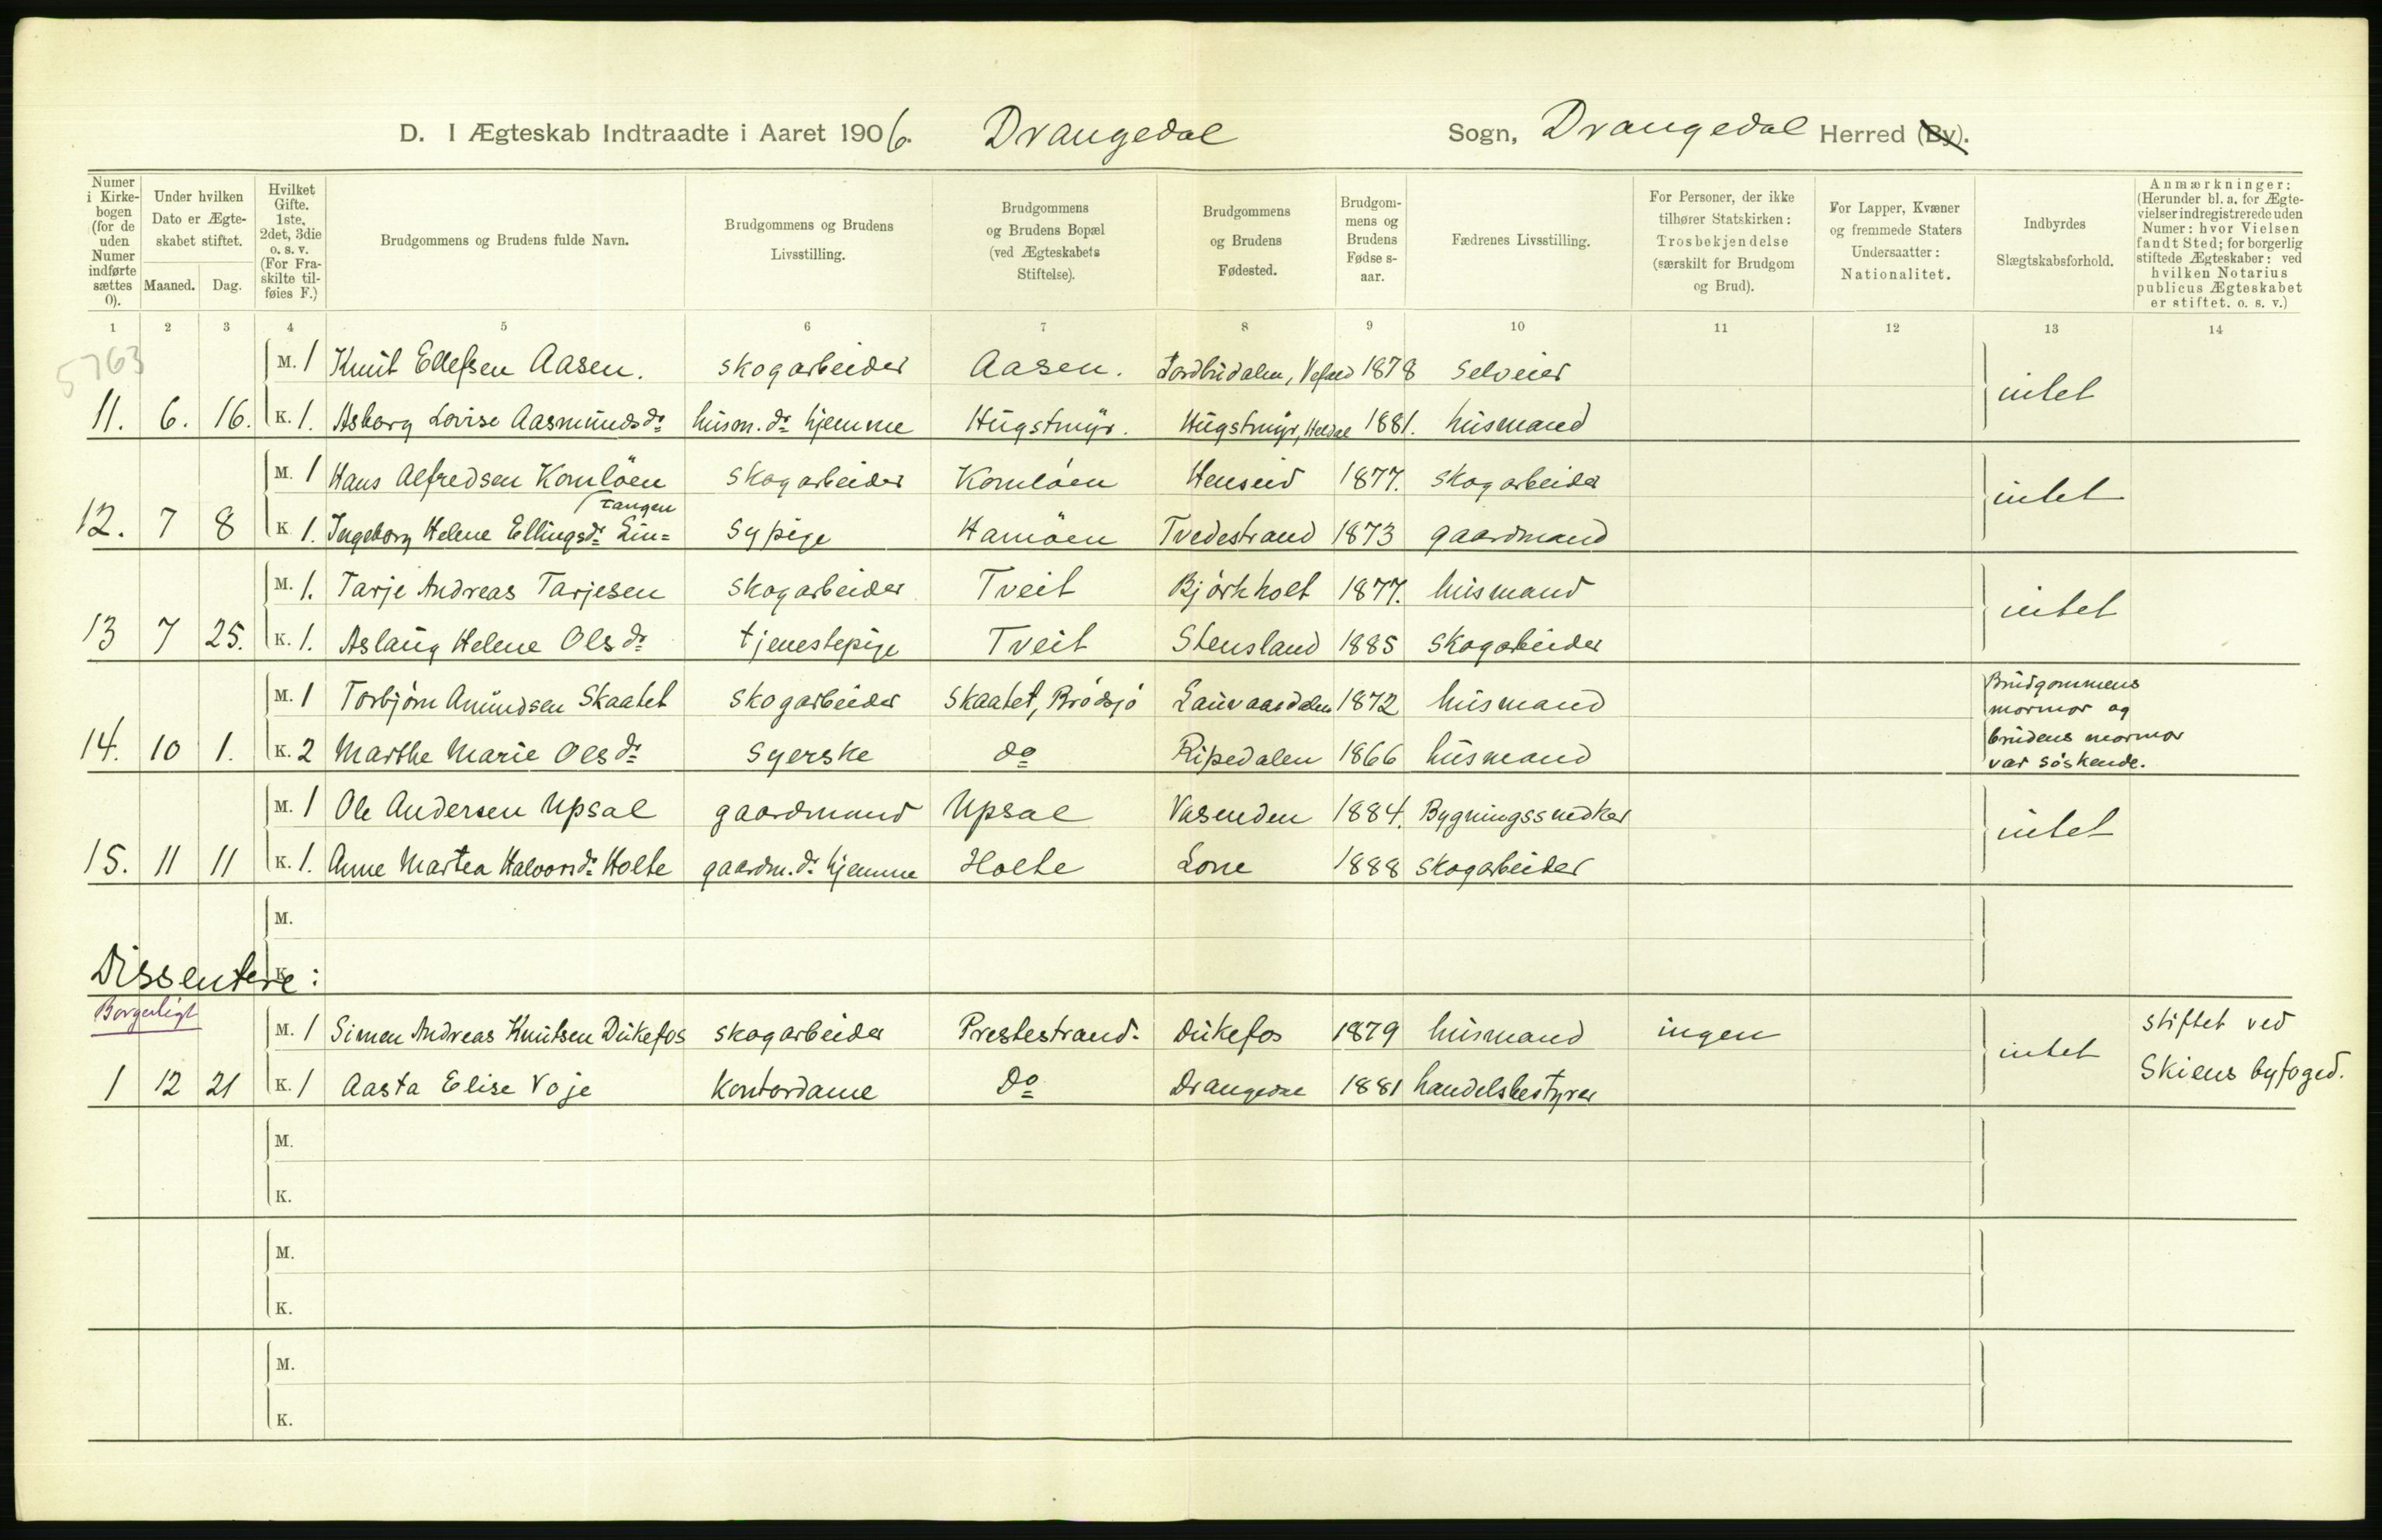 D. I Ægteskab Indtraadte i Aaret 1906. Drangedal Sogn, Drangedal Herred (By).
Numer i Kirkebogen (for de uden Numer indførte sættes 0).
Under hvilken Dato er Ægteskabet stiftet.
Maaned. Dag.
Hvilket Gifte. 1ste, 2det, 3die o. s. v. (For Fraskilte tilføies F.)
Brudgommens og Brudens fulde Navn.
Brudgommens og Brudens Livsstilling.
Brudgommens og Brudens Bopæl (ved Ægteskabets Stiftelse).
Brudgommens og Brudens Fødested.
Brudgommens og Brudens Fødselsaar.
Fædrenes Livsstilling.
For Personer, der ikke tilhører Statskirken: Trosbekjendelse (særskilt for Brudgom og Brud).
For Lapper, Kvæner og fremmede Staters Undersaatter: Nationalitet.
Indbyrdes Slægtskabsforhold.
Anmærkninger: (Herunder bl. a. for Ægtevielser indregistrerede uden Numer: hvor Vielsen fandt Sted; for borgerlig stiftede Ægteskaber: ved hvilken Notarius publicus Ægteskabet er stiftet. o. s. v.)
1 2 3 4 5 6 7 8 9 10 11 12 13 14
5763
M. 1 Knut Ellefsen Aasen. skogarbeider Aasen. 1878 Selveier
intet
11. 6. 16. K. 1. Asborg Lovise Aasmundsdr husm. dr hjemme Hugstmyr. Hugstmyr, 1881. husmand
M. 1 Hans Alfredsen Komløen skogarbeider Komløen Henseid 1877. skogarbeider
intet
tangen
12. 7 8 K 1. Ingeborg Helene Ellingsdr Lin= Sypige Hamøen Tvedestrand 1873 gaardmand
M. 1. Tarje Andreas Tarjesen skogarbeider Tveit Bjørkholt 1877. husmand
intet
13 7 25. K. 1. Aslaug Helene Olsdr tjenestepige Tveit Stensland 1885 skogarbeider
M. 1 Torbjørn Amundsen Skaatet skogarbeider Skaatet, Brødsjø 1872 husmand
Brudgommens
mormor og
14. 10 1. K. 2 Marthe Marie Olsdr Syerske do Ripedalen 1866 husmand
brudens mormor
var søskende.
M. 1 Ole Andersen Upsal gaardmand Upsal Vasenden 1884. Bygningssnedker
intet
15. 11 11 K. 1. Anne Martea Halvorsdr Holte gaardm. dr hjemme Holte Lone 1888 skogarbeider
M.
Dissentere:
K.
Borgerligt
M. 1 Simen Andreas Knutsen Dukefos skogarbeider Prestestrand. Dukefos 1879 husmand ingen stiftet ved
intet
1 12 21 K. 1 Aasta Elise Voje Kontordame Do Drangedal 1881 handelsbestyrer Skiens byfoged.
M.
K.
M.
K.
M.
K.